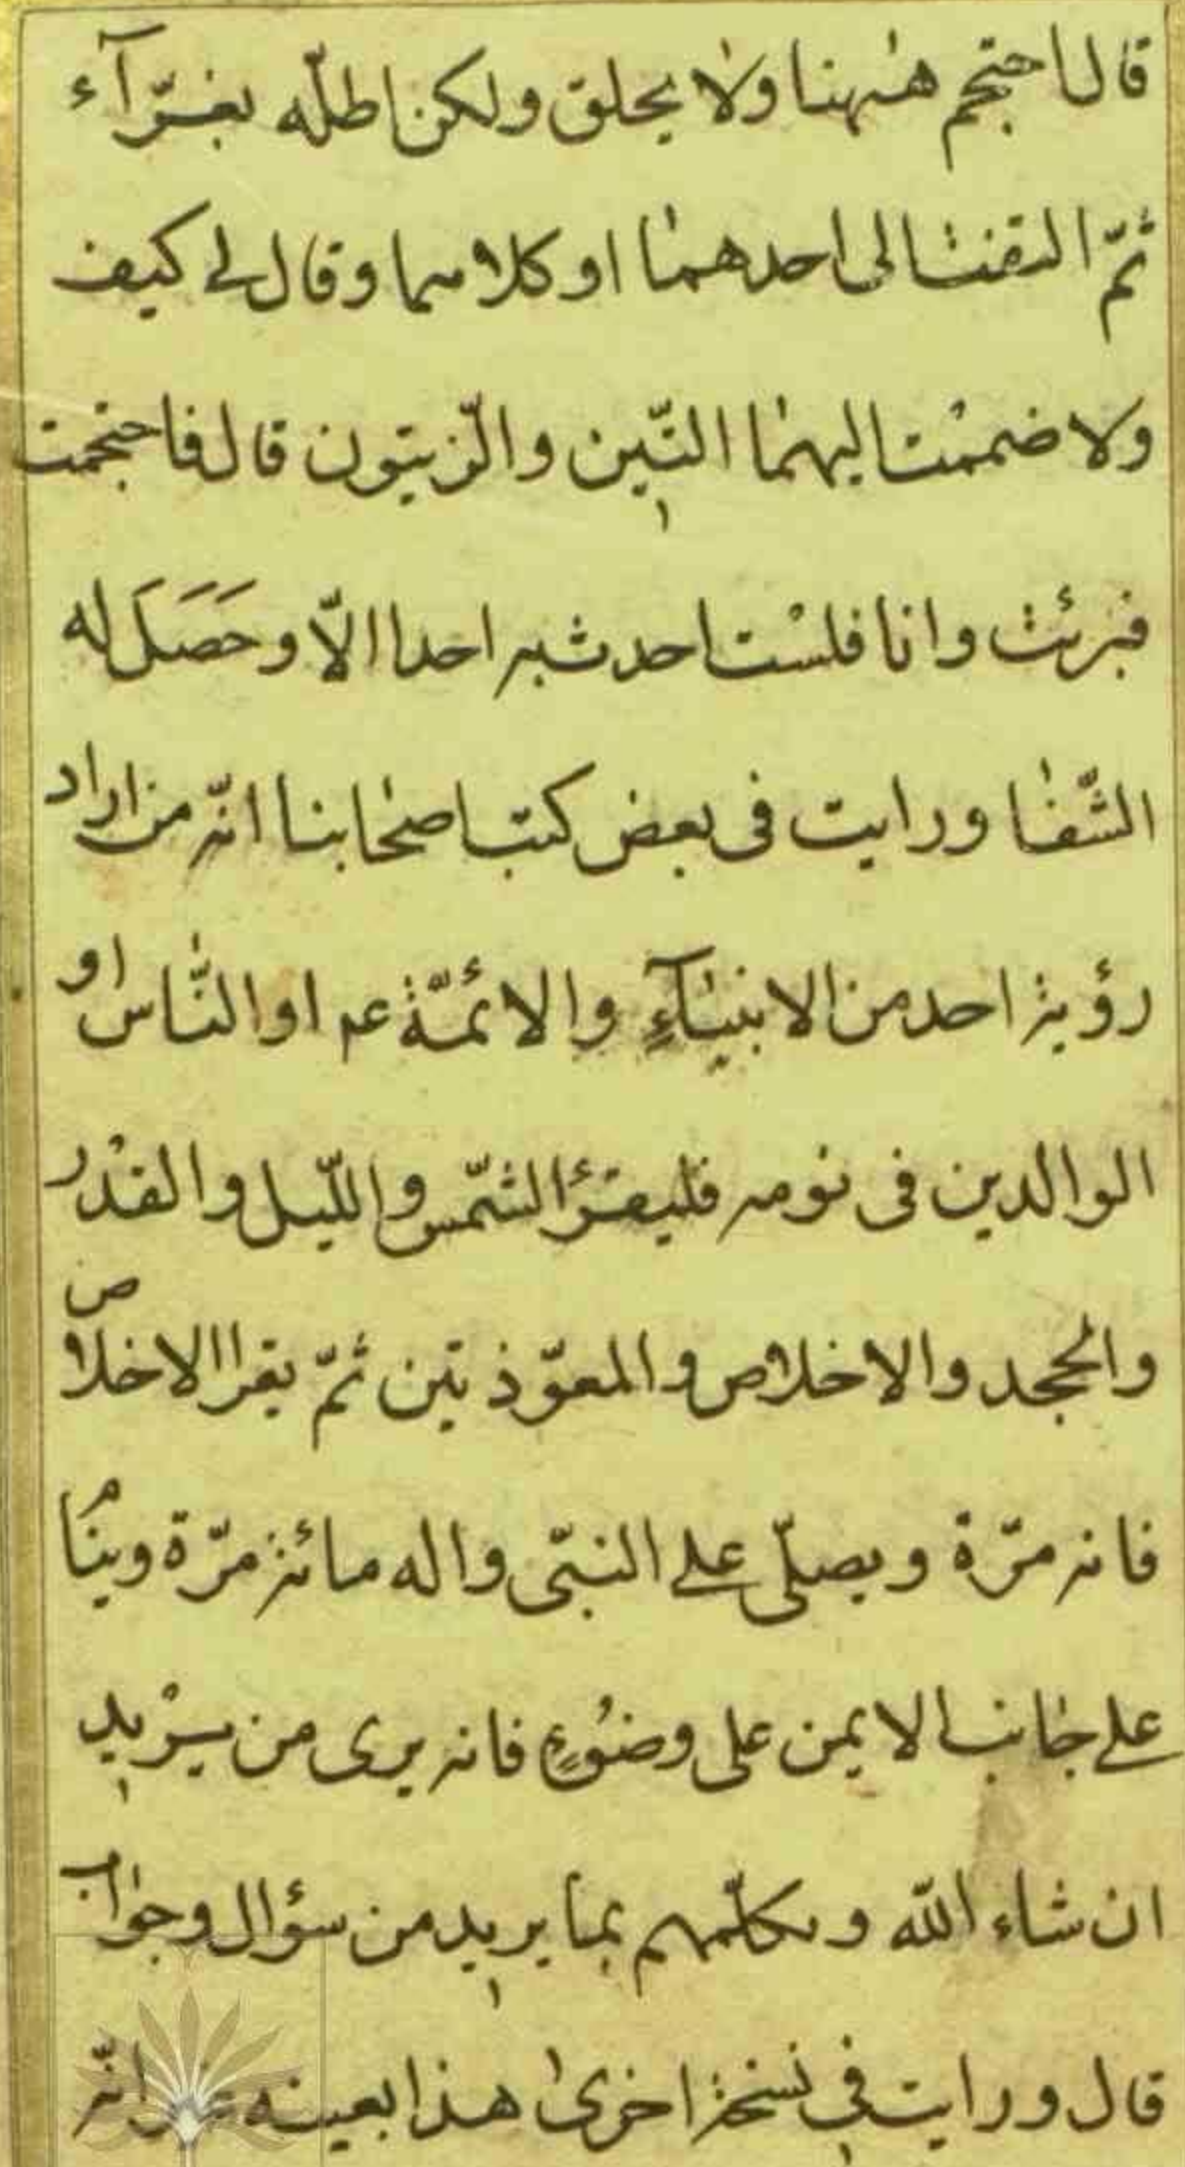 قال احتجم هٰهنا ولا يحلق ولكن اطله بغرّآء
ثمّ التفت الى احدهما او كلاهما وقال لى كيف
ولا ضممت اليهما التّين والزّيتون قال فاحتجمت
فبرئت وانا فلست احدث به احدا الاّ وحَصَلَ له
الشّفا ورايت فى بعض كتب اصحابنا انّه من اراد
رؤية احد من الانبيآءِ والائمّة عم او النّاس او
الوالدين فى نومه فليقرٔ الشّمس واللّيل والقدر
والجحد والاخلاص والمعوّذتين ثمّ يقرا الاخلاص
مائه مرّة ويصلّى على النبّى واله مائة مرّة وينام
على جانب الايمن على وضوُءٍ فانه يرى من يريد
ان شاء اللّه ويكلّمهم بما يريد من سؤال وجواب
قال ورايت فى نسخة اخرى هذا بعينه غير انّه